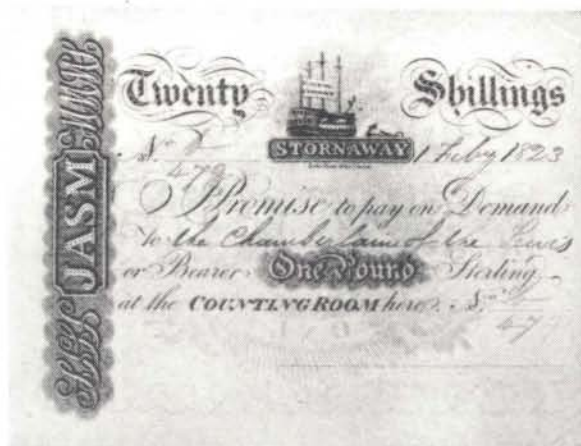 Twenty Shillings
STORNAWAY
No 1 Feby 1823
I Promise to pay on Demand
to the Chamberlain of the Lewis
or Bearer One Pound Sterling
at the COUNTINGROOM here. No
47
JAS M